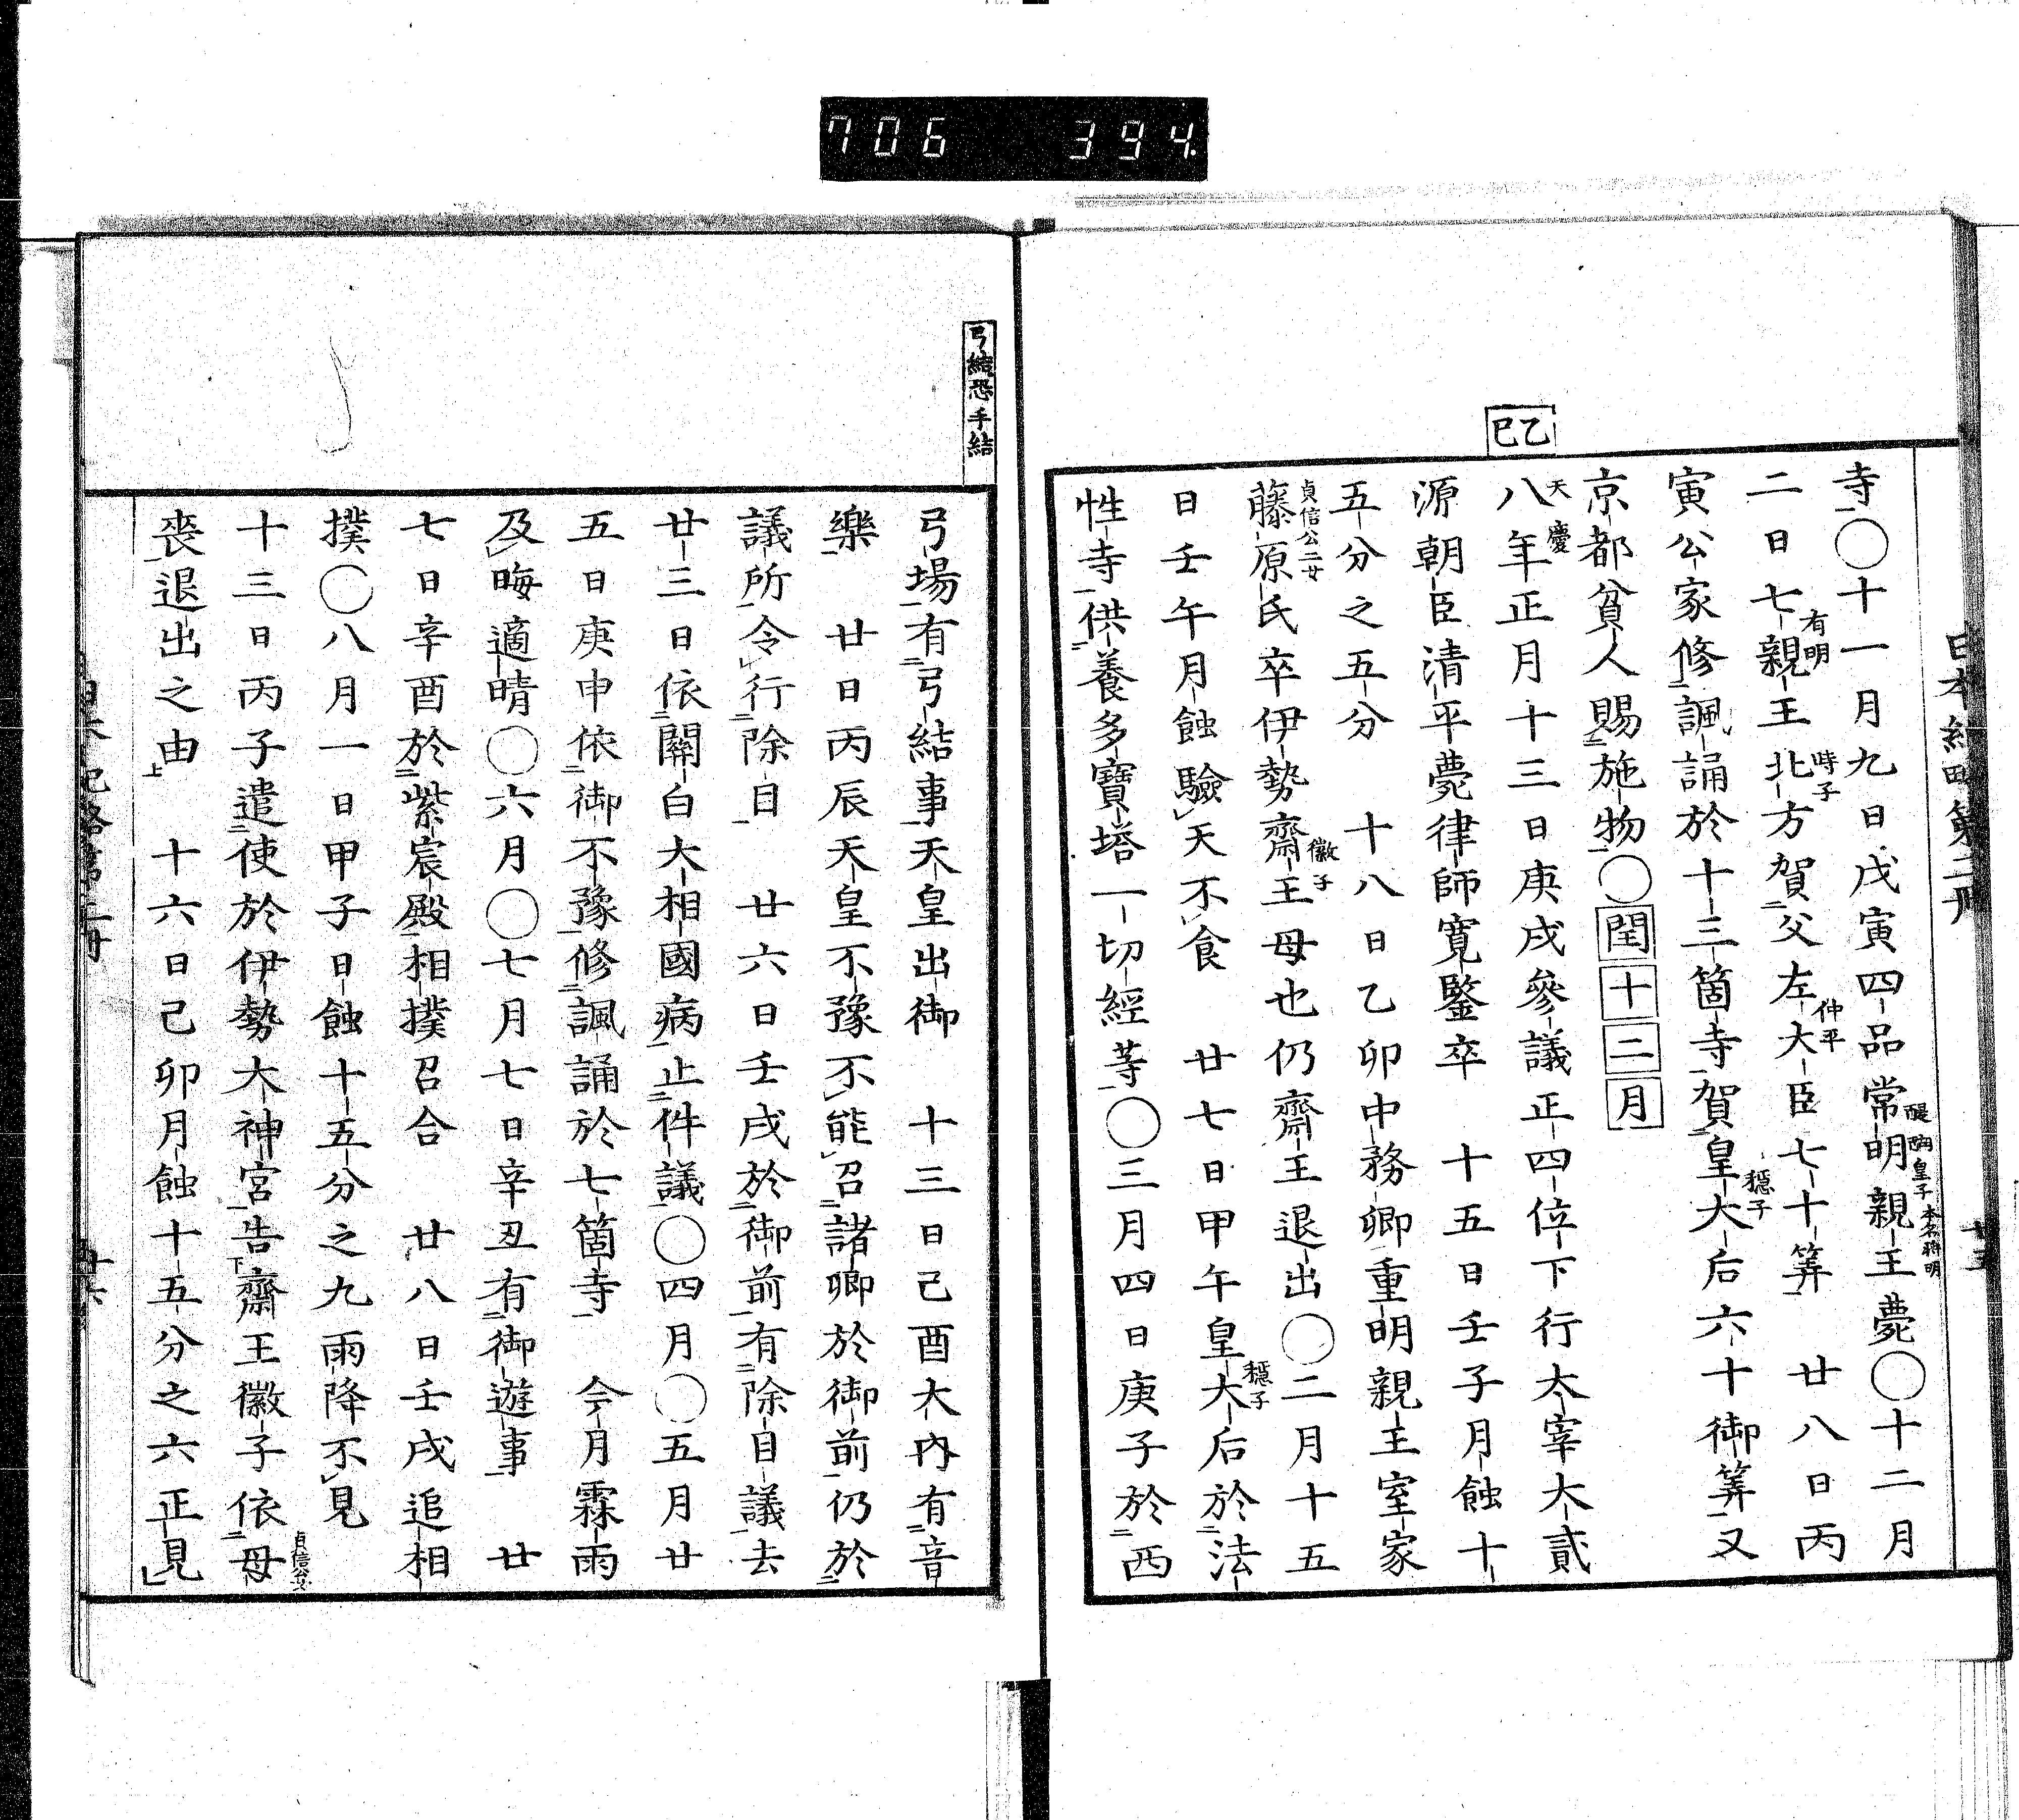 706 394.
日本紀略第二冊 廿五
乙巳
寺○十一月九日戊寅四品常明親王薨○十二月
醍醐皇子本名將明
二日七親王北方賀父左大臣七十筭 廿八日丙
有明 時子 仲平
寅公家修諷誦於十三箇寺賀皇大后六十御筭又
穩子
京都貧人賜施物○閏十二月
八年正月十三日庚戌參議正四位下行大宰大貳
天慶
源朝臣清平薨律師寬鑒卒 十五日壬子月蝕十
五分之五分 十八日乙卯中務卿重明親王室家
藤原氏卒伊勢齋王母也仍齋王退出○二月十五
貞信公二女 徽子
日壬午月蝕驗天不食 廿七日甲午皇大后於法
穩子
性寺供養多寶塔一切經等○三月四日庚子於西
弓結恐手結
弓場有弓結事天皇出御 十三日己酉大內有音
樂 廿日丙辰天皇不豫不能召諸卿於御前仍於
議所令行除目 廿六日壬戌於御前有除目議去
廿三日依關白大相國病止件議○四月○五月廿
五日庚申依御不豫修諷誦於七箇寺 今月霖雨
及晦適晴○六月○七月七日辛丑有御遊事 廿
七日辛酉於紫宸殿相撲召合 廿八日壬戌追相
撲○八月一日甲子日蝕十五分之九雨降不見
十三日丙子遣使於伊勢大神宮告齋王徽子依母
貞信公女
喪退出之由 十六日己卯月蝕十五分之六正見
日本紀略第二冊 廿六